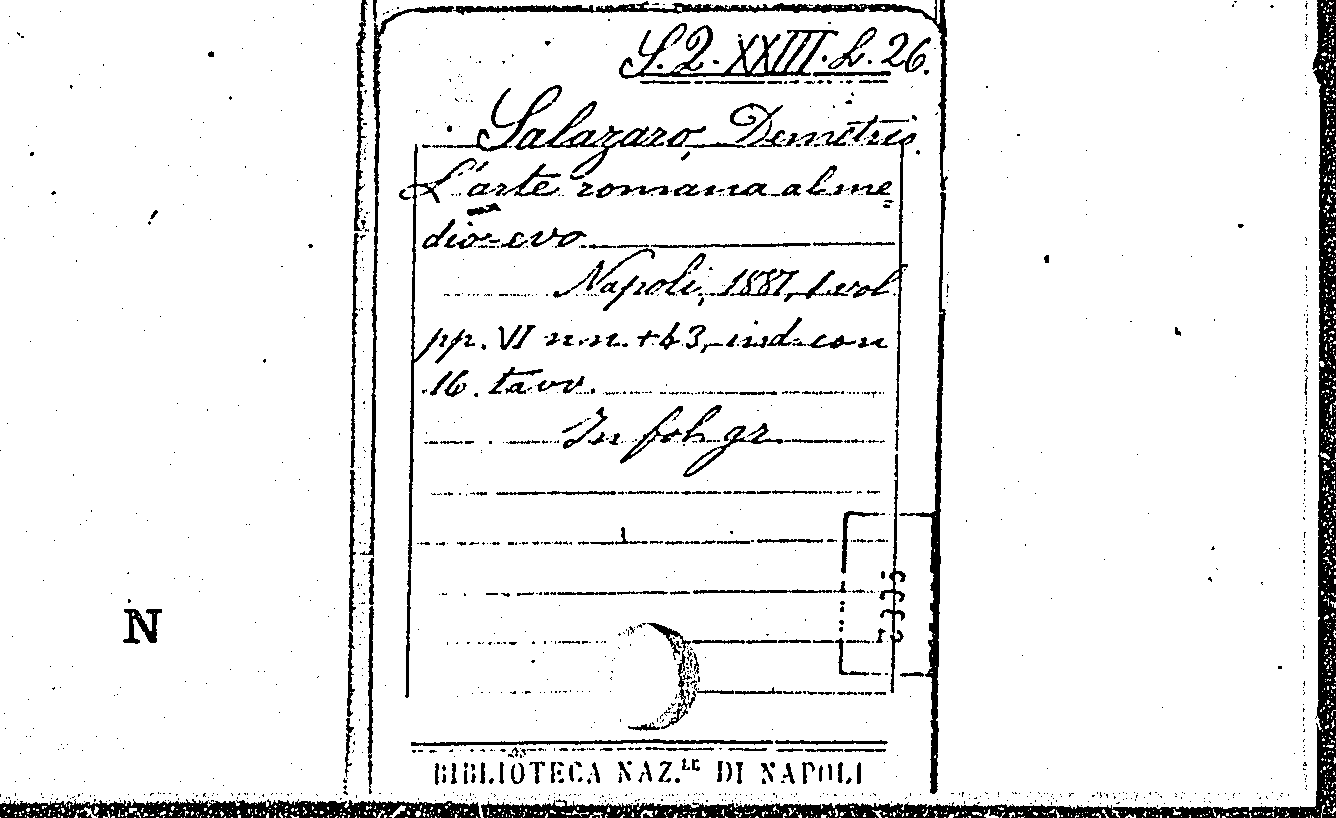 S.2. XXIII. L. 26.
Salazaro, Demetrio.
L'arte romana al me=
dio-evo
Napoli, 1881, 1 vol
pp. VI n.n. + 63, ind. con
16. tavv.
In fol. gr.
N
BIBLIOTECA NAZ.LE DI NAPOLI